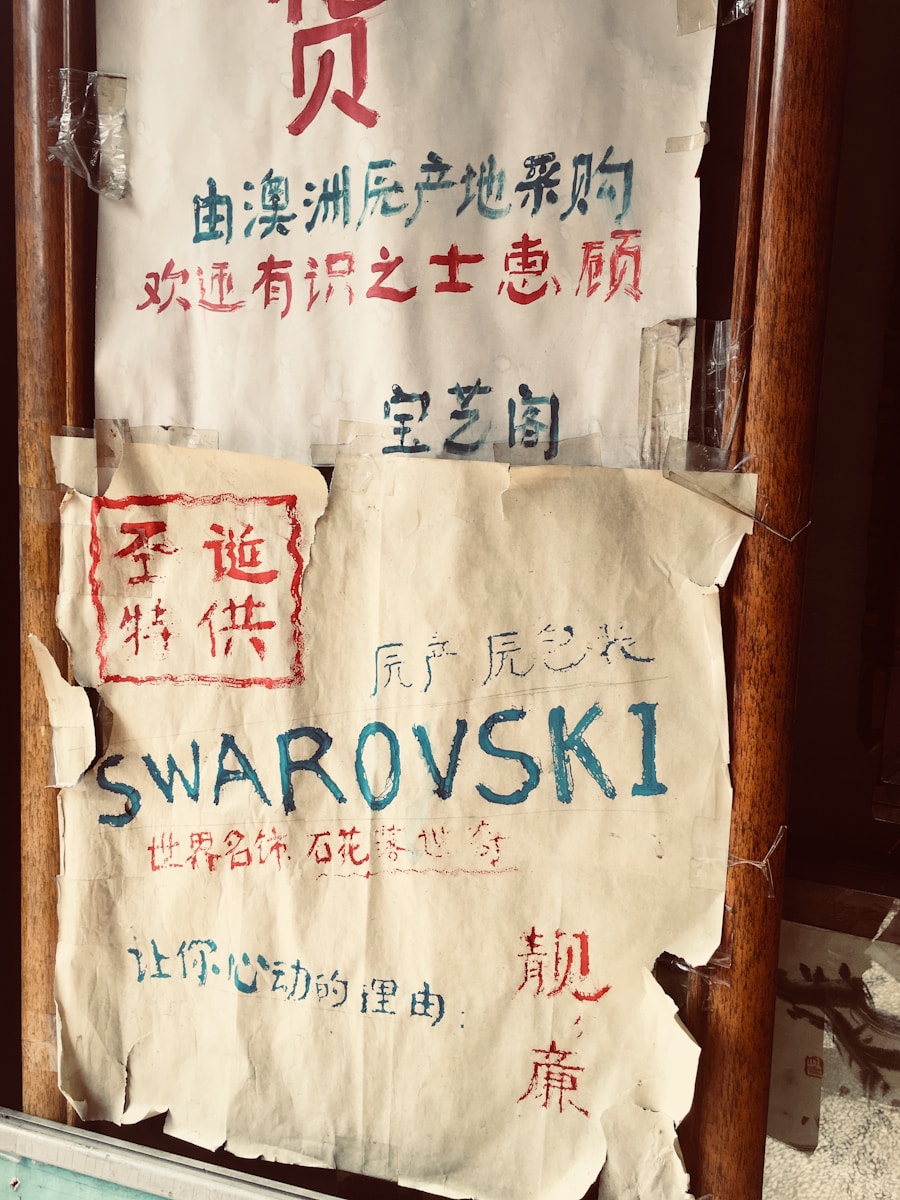 货
由澳洲原产地采购
欢迎有识之士惠顾
宝艺阁
圣诞
特供
原产 原包装
SWAROVSKI
世界名饰 石花落世奇
让你心动的理由:
靓,
廉